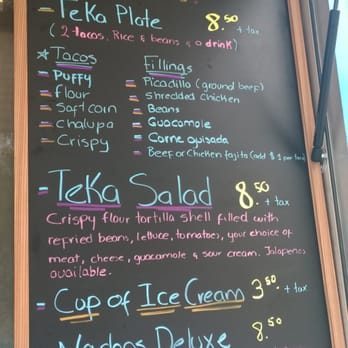 - TeKa Plate 8.50 + tax
( 2-tacos, Rice & beans & a drink )
☆ Tacos
- Puffy
- flour
- Soft corn
- Chalupa
- Crispy
Fillings
- Picadillo (ground beef)
- shredded chicken
- Beans
- Guacamole
- Carne guisada
- Beef or Chicken fajita (add $1 per taco)
- TeKa Salad 8.50 + tax
Crispy flour tortilla shell filled with
refried beans, lettuce, tomatoes, your choice of
meat, cheese, guacamole & sour cream. Jalapenos
available.
- Cup of Ice Cream 3.50 + tax
Nachos Deluxe 8.50